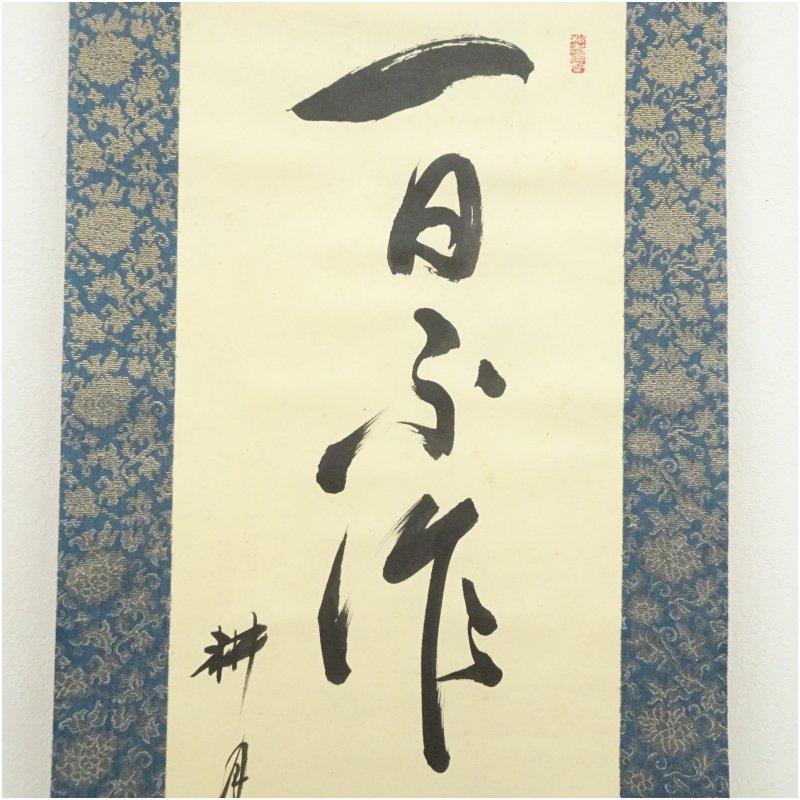 一日不作
耕月